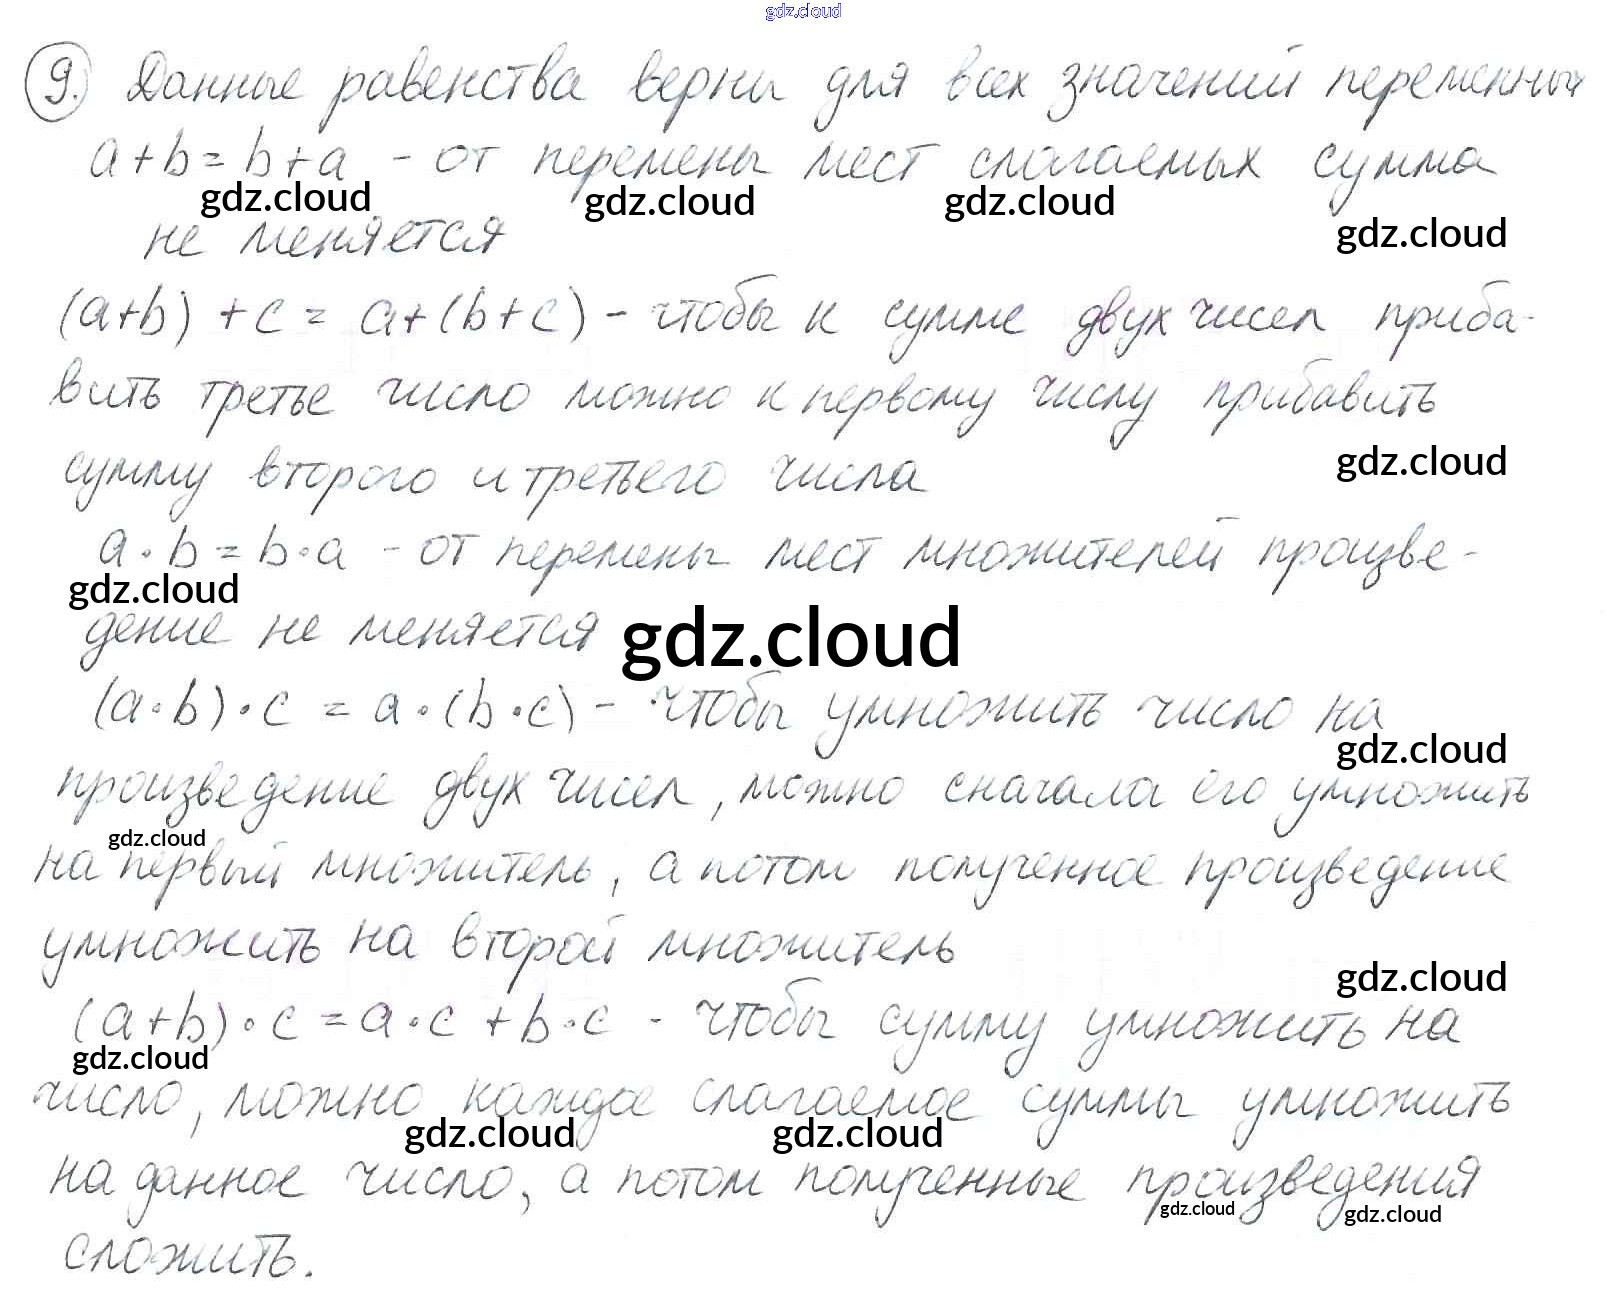 gdz.cloud
9. Данные равенства верны для всех значений переменных
a+b=b+a - от перемены мест слагаемых сумма
gdz.cloud gdz.cloud gdz.cloud
gdz.cloud
не меняется
(a+b)+c = a+(b+c) - чтобы к сумме двух чисел приба-
вить третье число можно к первому числу прибавить
gdz.cloud
сумму второго и третьего числа
a·b=b·a - от перемены мест множителей произве-
gdz.cloud
дение не меняется
gdz.cloud
(a·b)·c = a·(b·c) - чтобы умножить число на
gdz.cloud
произведение двух чисел, можно сначала его умножить
gdz.cloud
на первый множитель, а потом полученное произведение
умножить на второй множитель
gdz.cloud
(a+b)·c = a·c + b·c - чтобы сумму умножить на
gdz.cloud
число, можно каждое слагаемое суммы умножить
gdz.cloud gdz.cloud
на данное число, а потом полученные произведения
gdz.cloud gdz.cloud
сложить.